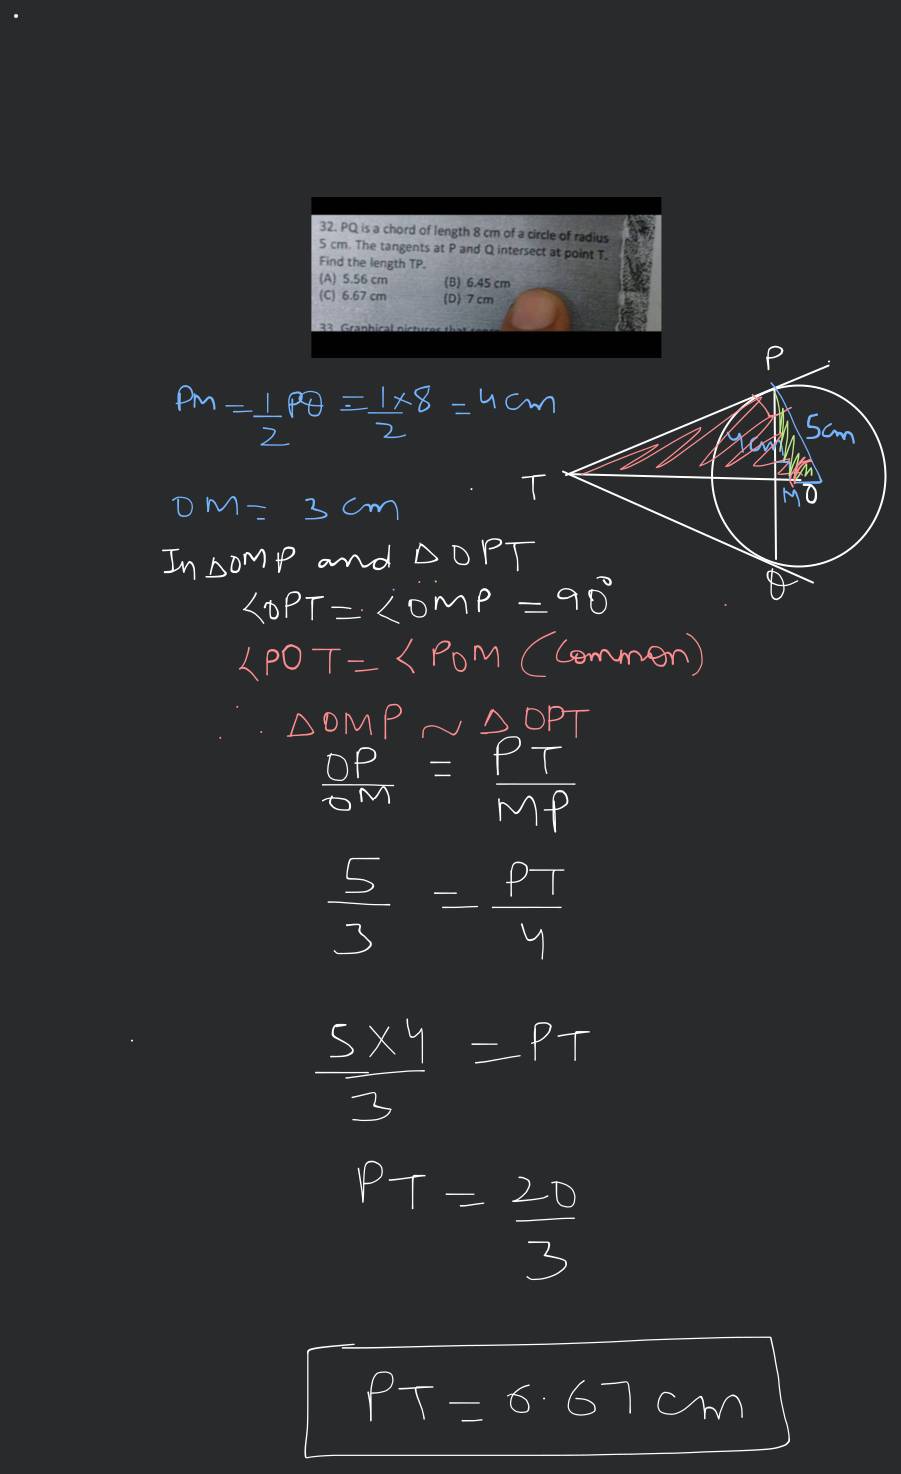 32. PQ is a chord of length 8 cm of a circle of radius
5 cm. The tangents at P and Q intersect at point T.
Find the length TP.
(A) 5.56 cm (B) 6.45 cm
(C) 6.67 cm (D) 7 cm
33. Graphical pictures that
P
PM = 1/2 PQ = 1/2 × 8 = 4 cm
4cm 5cm
T M O
OM = 3 cm
In ΔOMP and ΔOPT
Q
<OPT = <OMP = 90°
<POT = <POM (Common)
∴ ΔOMP ~ ΔOPT
OP/OM = PT/MP
5/3 = PT/4
5×4/3 = PT
PT = 20/3
PT = 6.67 cm